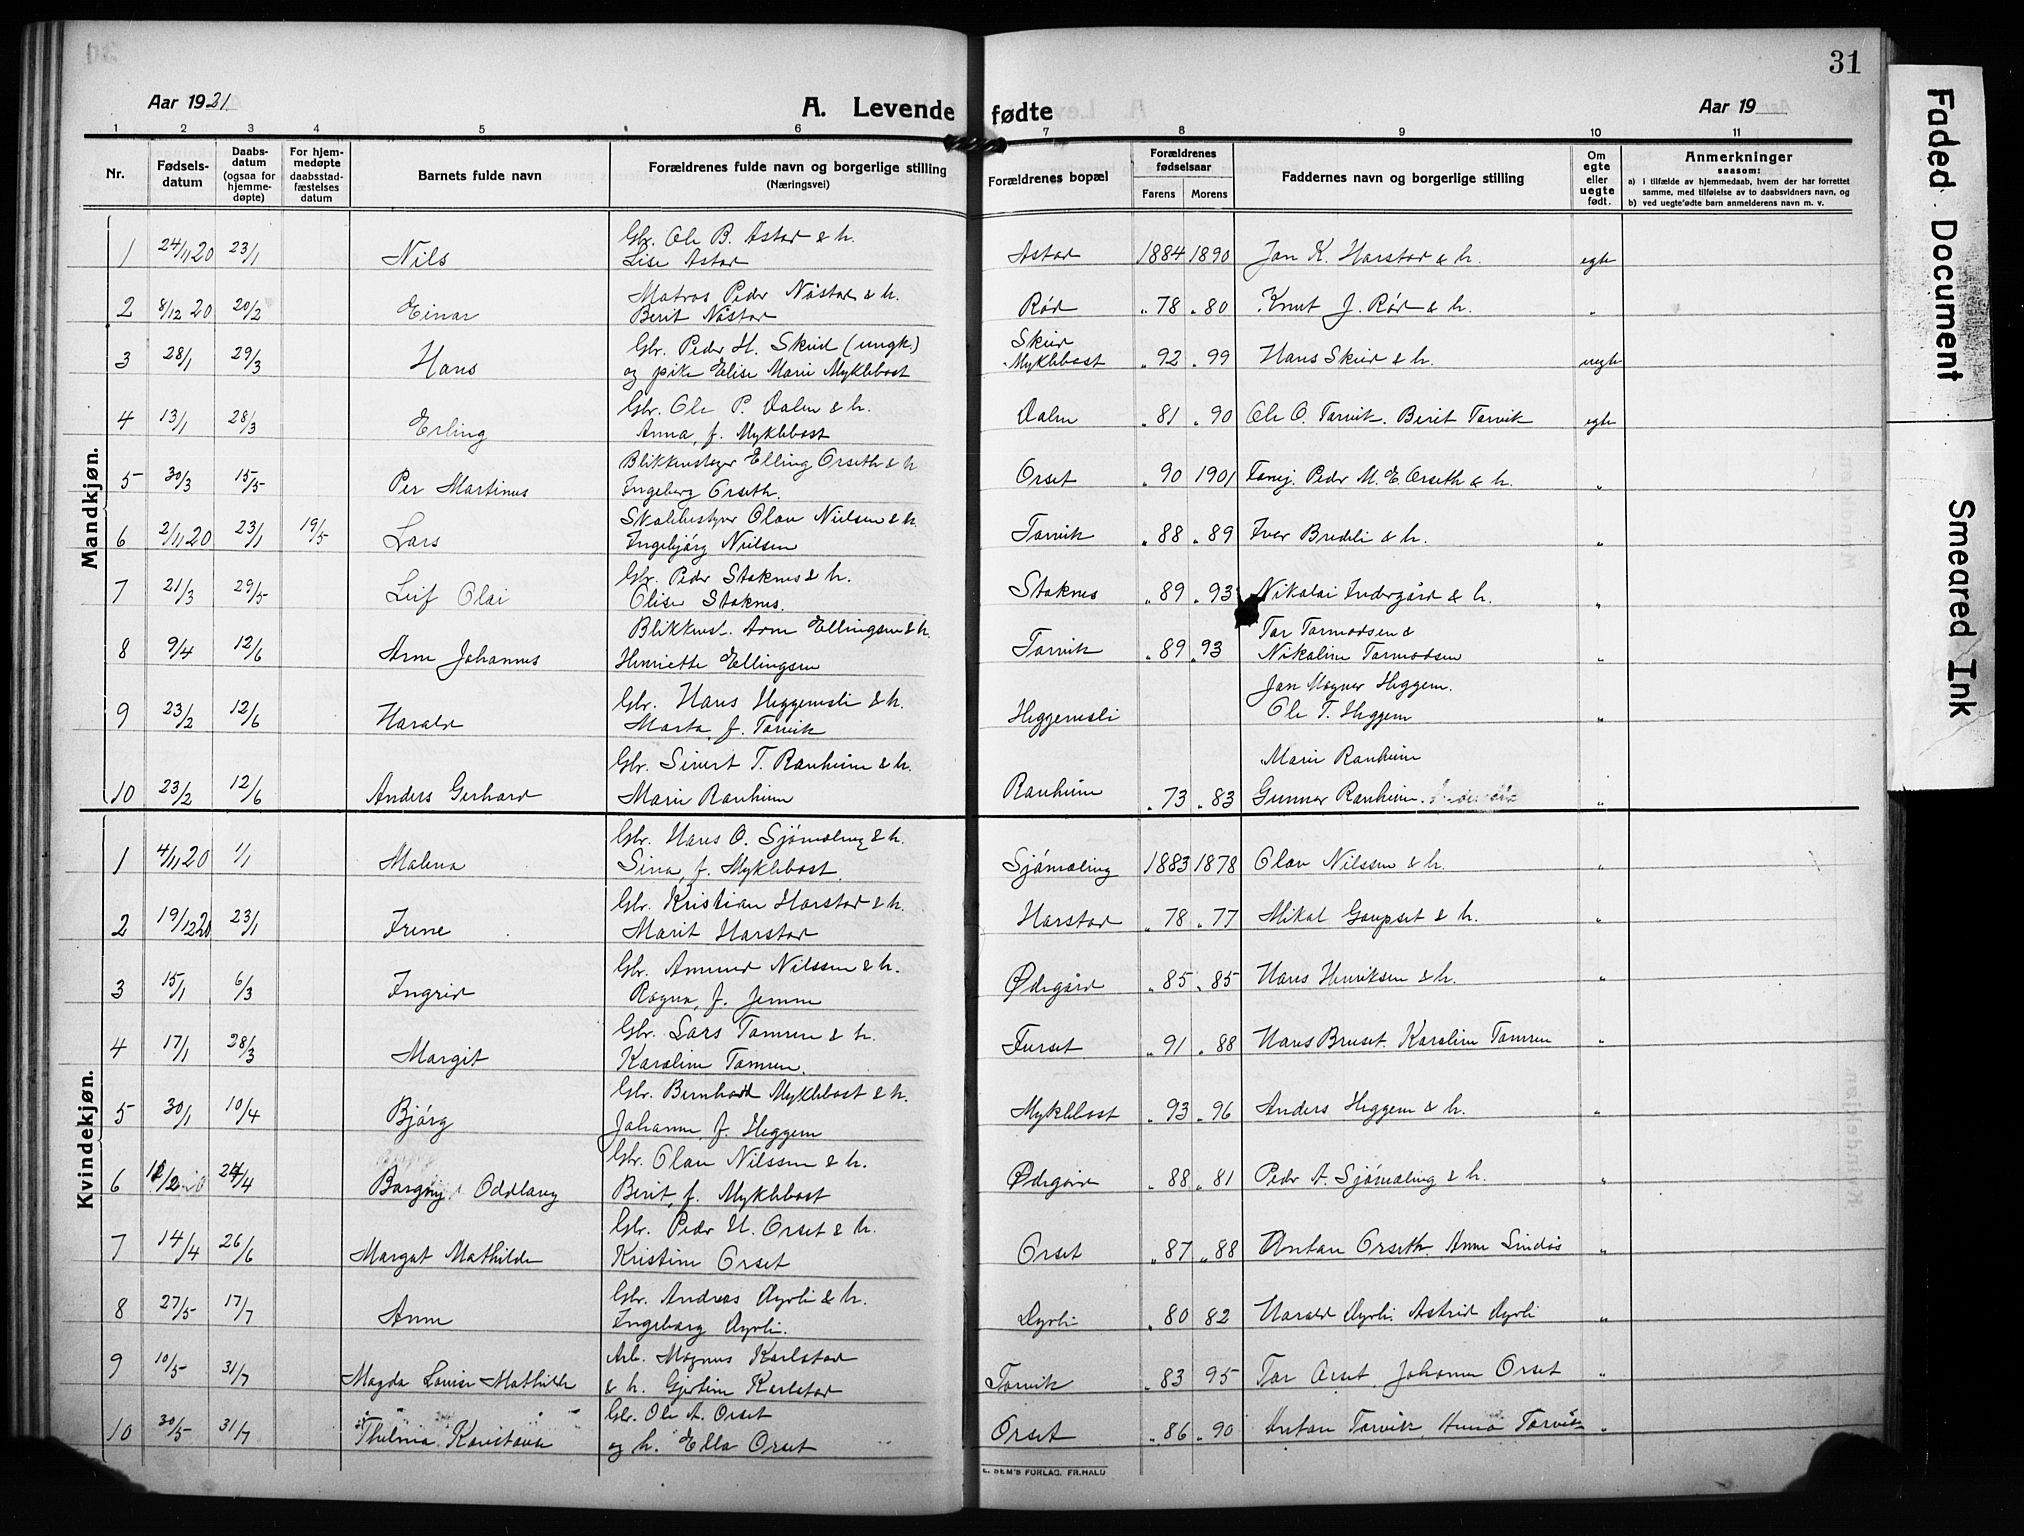 31
Aar 1921.
A. Levende fødte
Aar 19
1 2 3 4 5 6 7 8 9 10 11
Nr.
Fødsels-datum
Daabs-datum (ogsaa for hjemme-døpte)
For hjem-medøpte daabsstad-fæstelses datum
Barnets fulde navn
Forældrenes fulde navn og borgerlige stilling
(Næringsvei)
Forældrenes bopæl
Forældrenes fødselsaar
Farens Morens
Faddernes navn og borgerlige stilling
Om egte eller uegte født.
Anmerkninger
saasom:
a) i tilfælde av hjemmedaab, hvem der har forrettet samme, med tilføielse av to daabsvidners navn, og
b) ved uegtefødte barn anmelderens navn m. v.
Mandkjøn.
1 24/11 20 23/1 Nils Gbr. Ole B. Astad & h. Lise Astad Astad 1884 1890 Jon K. Harstad & h. egte
2 8/12 20 20/2 Einar Matros Peder Nåstad & h. Berit Nåstad Rød " 78 " 80 Knut J. Rød & h. "
3 28/1 29/3 Hans Gbr. Peder H. Skeid (ungk.) og pike Elise Marie Myklebost Skeid Myklebost " 92 " 99 Hans Skeid & h. uegte
4 13/1 28/3 Erling Gbr. Ole P. Dalen & h. Anna, f. Myklebost Dalen " 81 " 90 Ole O. Torvik. Berit Torvik egte
5 30/3 15/5 Per Martinus Blikkenslager Elling Orseth & h. Ingeborg Orseth. Orset " 90 1901 Peder M. E. Orseth & h. "
6 2/11 20 23/1 19/5 Lars Skolebestyrer Olav Nielsen & h. Ingebjörg Nielsen Torvik " 88 " 89 Iver Bredeli & h. "
7 21/3 29/5 Leif Olai Gbr. Peder Stoknes & h. Olise Stoknes. Stoknes " 89 " 93 Nikolai Indergård & h. "
8 9/4 12/6 Arne Johannes Blikkensl. Arne Ellingsen & h. Henriette Ellingsen Torvik " 89 " 93 Tor Tormodsen & Nikoline Tormodsen "
9 23/2 12/6 Harald Gbr. Hans Heggemsli & h. Marta, f. Torvik Heggemsli Jon Magner Heggem. Ole T. Heggem "
10 23/2 12/6 Anders Gerhard Gbr. Sivert T. Ranheim & h. Marie Ranheim Ranheim " 73 " 83 Marie Ranheim Gunnar Ranheim. "
Kvindekjøn.
1 4/11 20 1/1 Malena Gbr. Hans O. Sjömæling & h. Sina, f. Myklebost. Sjömæling 1883 1878 Olav Nilssen & h. "
2 19/12 20 23/1 Irene Gbr. Kristian Harstad & h. Marit Harstad Harstad " 78 " 77 Mikal Gaupset & h. "
3 15/1 6/3 Ingrid Gbr. Amund Nilssen & h. Ragna, f. Jemne Ødegård " 85 " 85 Hans Henriksen & h. "
4 17/1 28/3 Margit Gbr. Lars Tomren & h. Karoline Tomren. Furset " 91 " 88 Hans Bruset. Karoline Tomren "
5 30/1 10/4 Bjørg Gbr. Bernhard Myklebost & h. Johanne, f. Heggem Myklebost " 93 " 96 Anders Heggem & h. "
6 24/4 Borgny Oddlaug Gbr. Olav Nilssen & h. Berit, f. Myklebost Ødegård " 88 " 81 Peder A. Sjömæling & h. "
7 14/4 26/6 Margot Mathilde Gbr. Peder H. Orset & h. Kristine Orset Orset " 87 " 88 Anton Orseth. Anne Lindås "
8 27/5 17/7 Anne Gbr. Andreas Dyrli & h. Ingeborg Dyrli. Dyrli " 80 82 Harald Dyrli. Astrid Dyrli "
9 10/5 31/7 Magda Louise Mathilde Arb. Magnus Karlstad & h. Gjertine Karlstad Torvik " 83 95 Tor Orset. Johanne Orset "
10 30/5 31/7 Thelma Konstanse Gbr. Ole A. Orset og h. Ella Orset Orset " 86 " 90 Anton Torvik Anna Torvik "
E. SEM'S FORLAG. FR.HALD
Faded Document
Smeared Ink